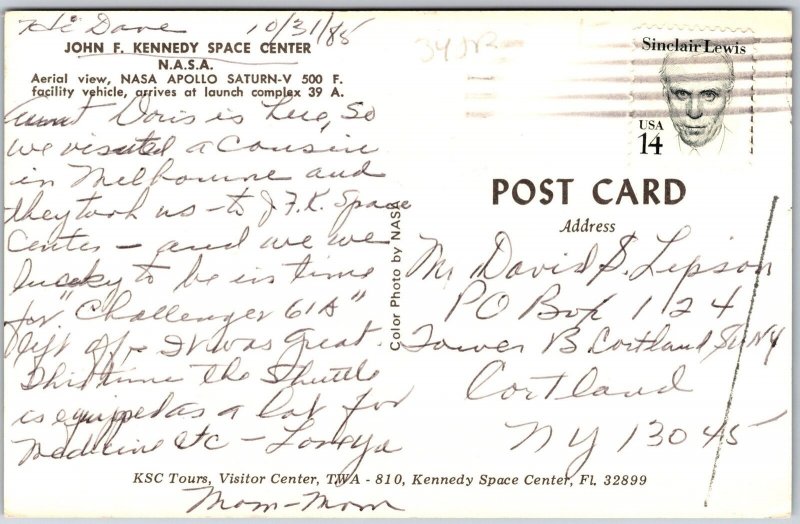 Hi Dave 10/31/85
JOHN F. KENNEDY SPACE CENTER
N.A.S.A.
Aerial view, NASA APOLLO SATURN-V 500 F.
facility vehicle, arrives at launch complex 39 A.
Aunt Doris is here, So
we visited a cousin
in Melbourne and
they took us - to J.F.K. Space
Center - and we we
lucky to be in time
for "Challenger 61A"
lift off - It was Great.
This time the Shuttle
is equipped as a lab for
Medicine etc - Love ya
Mom-Mom
Color Photo by NASA
Sinclair Lewis
USA
14
POST CARD
Address
Mr David S. Lepson
PO Box 124
Tower B. Cortland SUNY
Cortland
NY 13045
KSC Tours, Visitor Center, TWA - 810, Kennedy Space Center, Fl. 32899